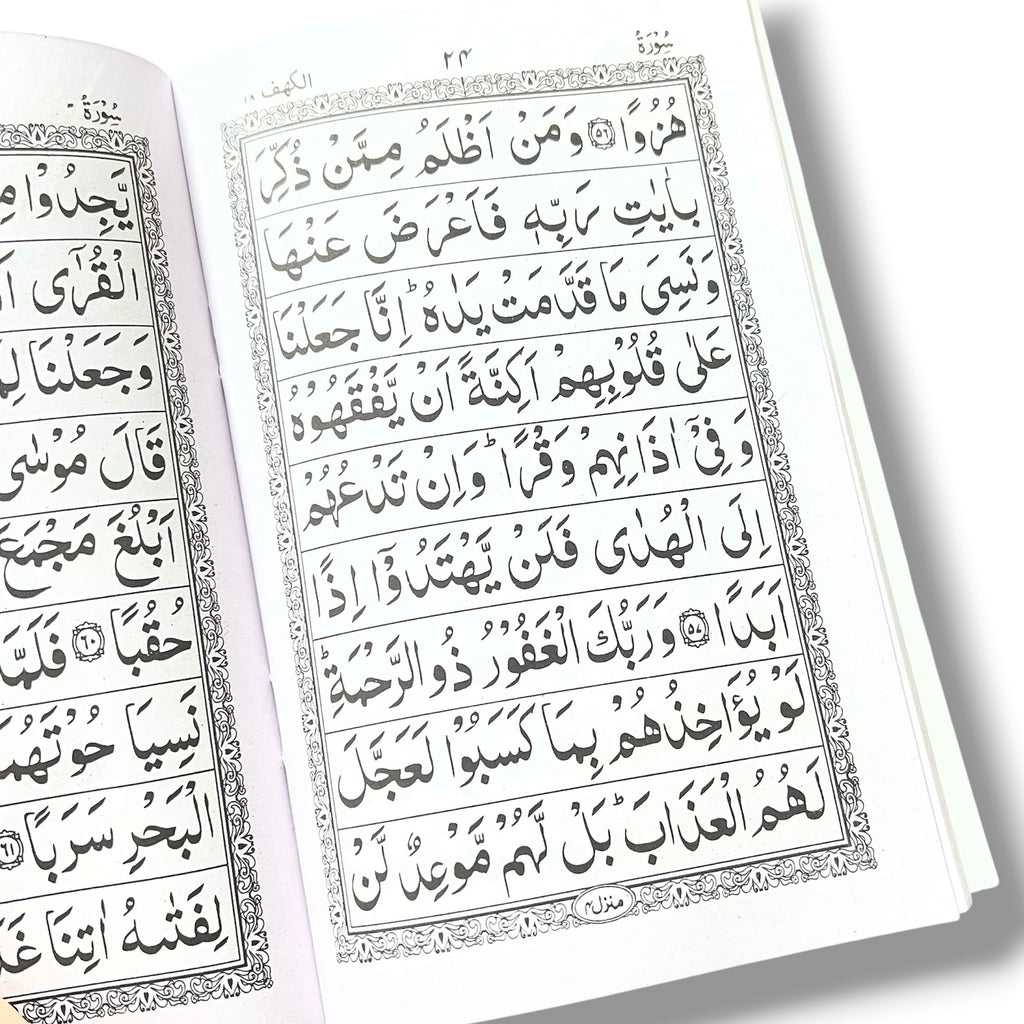 سُوْرَةُ
٢٤
الكهف ١٨
هُزُوًا ﴿٥٦﴾ وَمَنْ اَظْلَمُ مِمَّنْ ذُكِّرَ
بِاٰيٰتِ رَبِّهٖ فَاَعْرَضَ عَنْهَا
وَنَسِىَ مَا قَدَّمَتْ يَدٰهُ ؕ اِنَّا جَعَلْنَا
عَلٰى قُلُوْبِهِمْ اَكِنَّةً اَنْ يَّفْقَهُوْهُ
وَفِىْۤ اٰذَانِهِمْ وَقْرًا ؕ وَاِنْ تَدْعُهُمْ
اِلَى الْهُدٰى فَلَنْ يَّهْتَدُوْۤا اِذًا
اَبَدًا ﴿٥٧﴾ وَرَبُّكَ الْغَفُوْرُ ذُو الرَّحْمَةِ ؕ
لَوْ يُؤَاخِذُهُمْ بِمَا كَسَبُوْا لَعَجَّلَ
لَهُمُ الْعَذَابَ ؕ بَلْ لَّهُمْ مَّوْعِدٌ لَّنْ
منزل ٤
سُوْرَةُ
يَّجِدُوْا
الْقُرٰٓى
وَجَعَلْنَا
قَالَ مُوْسٰى
اَبْلُغَ مَجْمَعَ
حُقُبًا ﴿٦٠﴾ فَلَمَّا
نَسِيَا حُوْتَهُمَا
الْبَحْرِ سَرَبًا ﴿٦١﴾
لِفَتٰىهُ اٰتِنَا